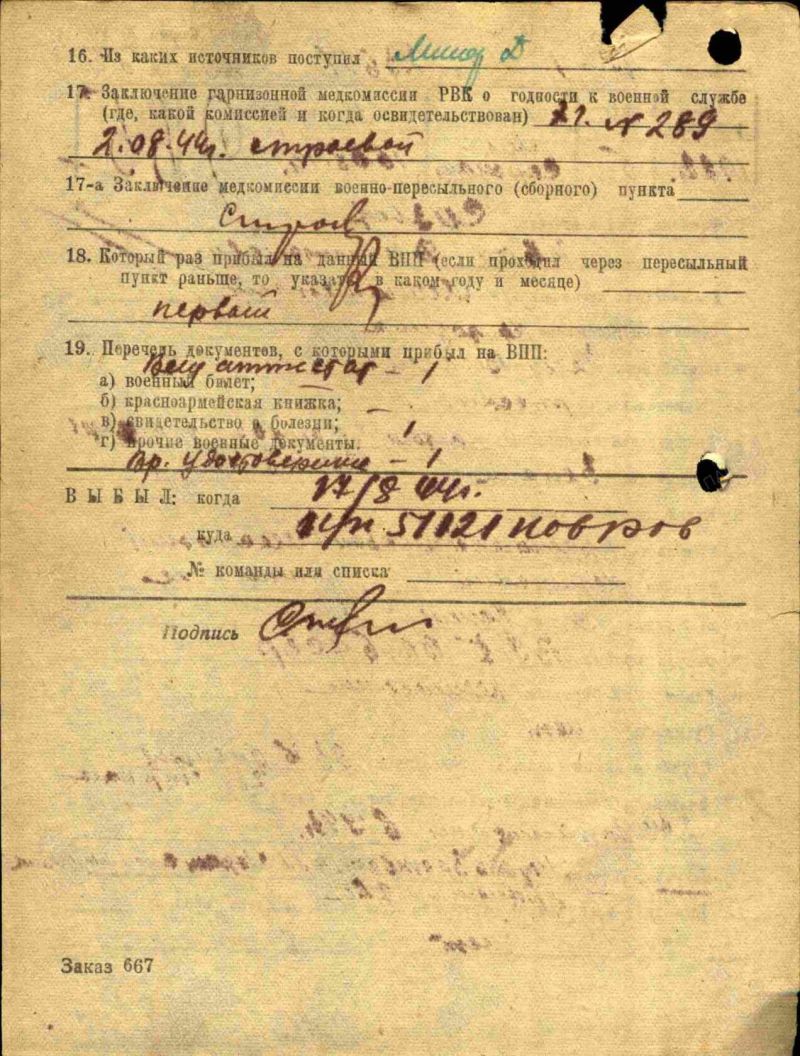 16. Из каких источников поступил
17. Заключение гарнизонной медкомиссии РВК о годности к военной службе
(где, какой комиссией и когда освидетельствован) № 289
2.08.44г. строевой
17-а Заключение медкомиссии военно-пересыльного (сборного) пункта
18. Который раз прибыл на данный ВПП (если проходил через пересыльный
пункт раньше, то указать, в каком году и месяце)
первый
19. Перечень документов, с которыми прибыл на ВПП:
Вещ аттестат – 1
а) военный билет;
б) красноармейская книжка; –
в) свидетельство о болезни; 1
г) прочие военные документы.
Вр. удостоверение – 1
ВЫБЫЛ: когда 17/8 44г.
куда 51121 Ковров
№ команды или списка
Подпись
Заказ 667